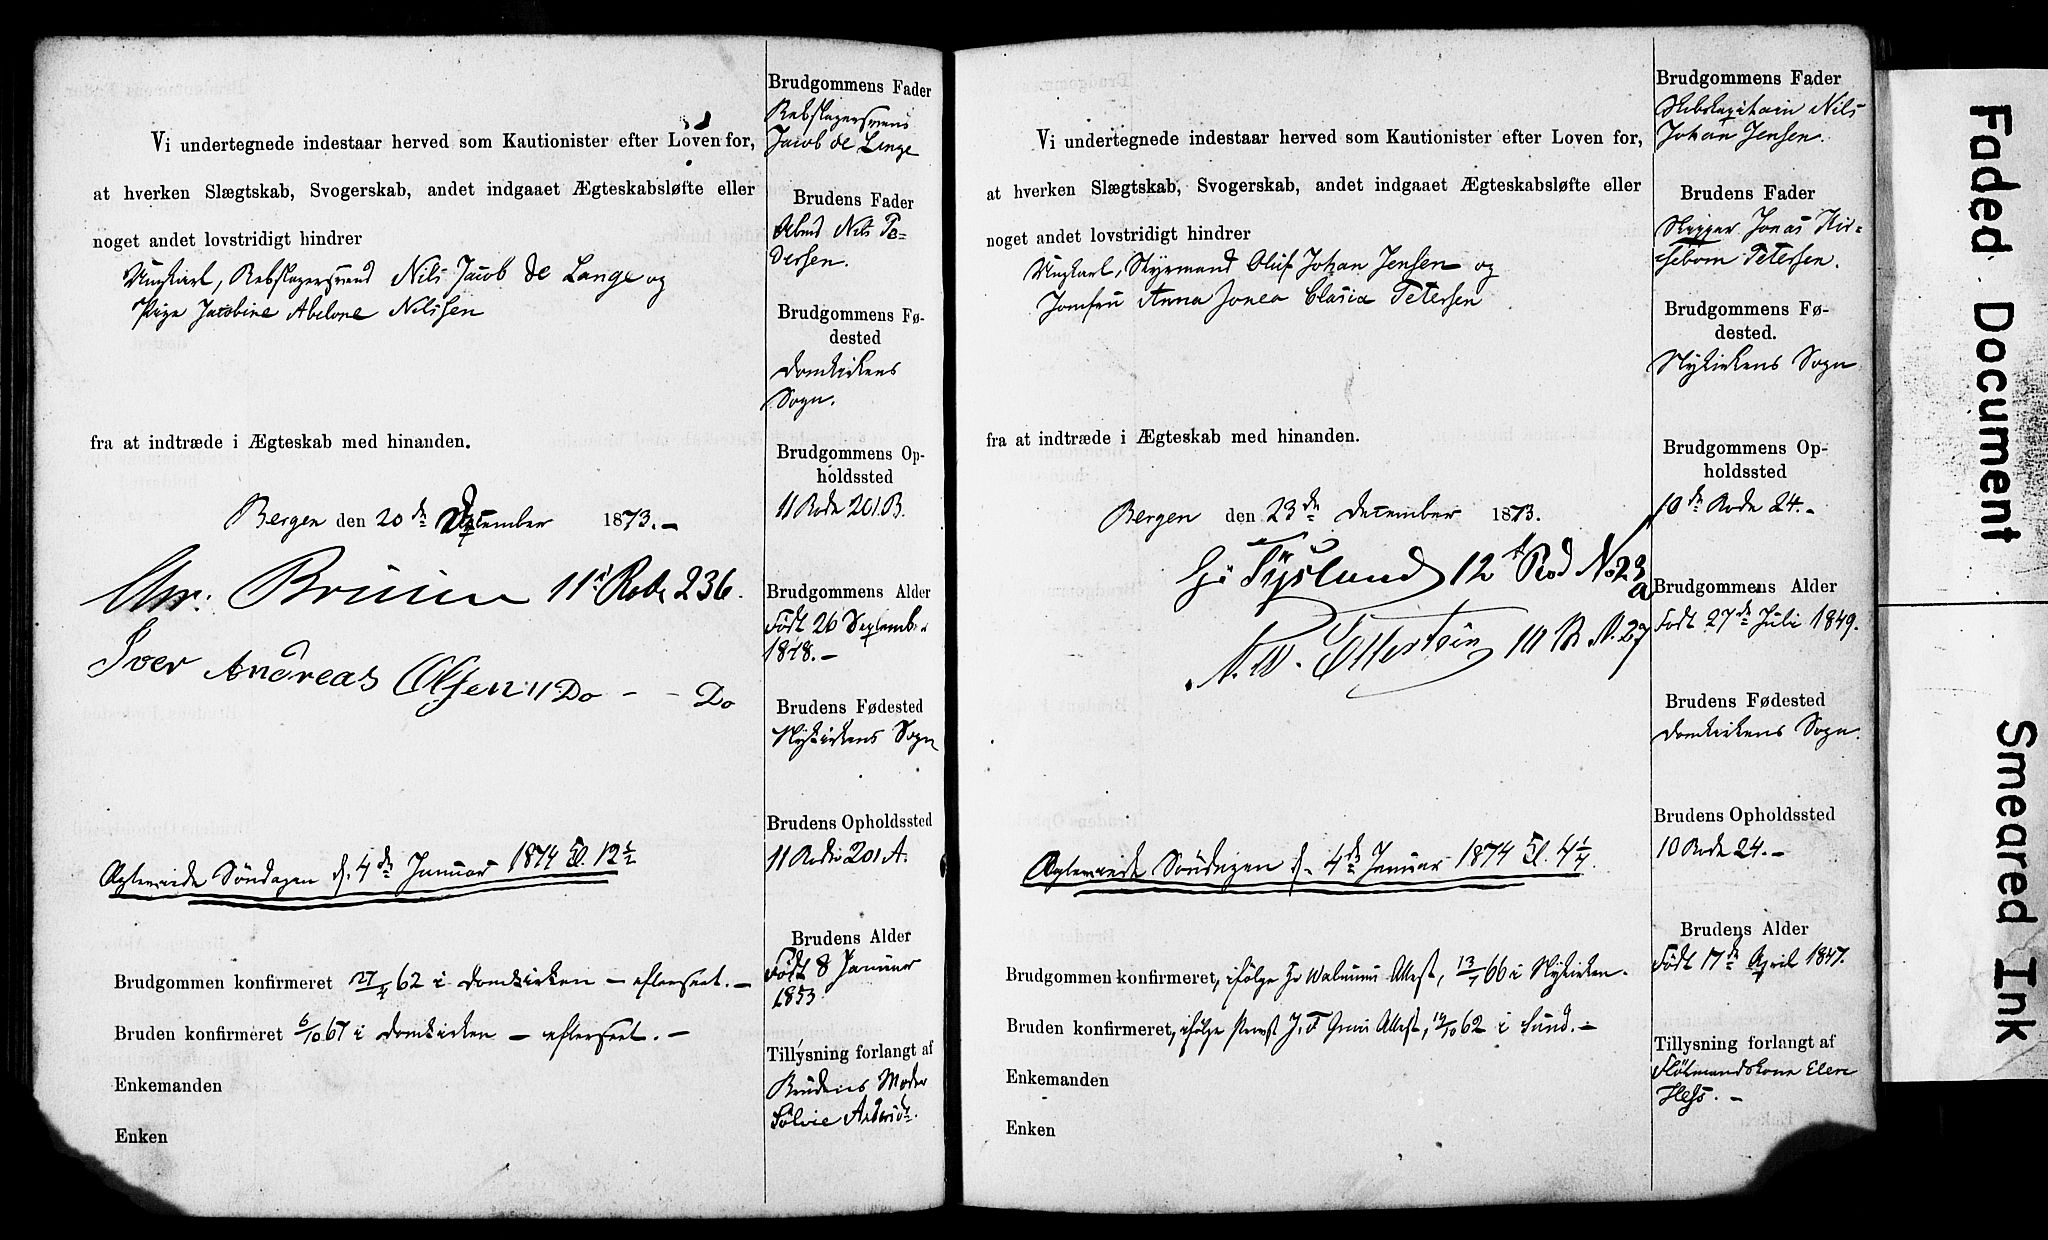 Vi undertegnede indestaar herved som Kautionister efter Loven for,
at hverken Slægtskab, Svogerskab, andet indgaaet Ægteskabsløfte eller
noget andet lovstridigt hindrer
Ungkarl, Rebslagersvend Nils Jacob de Lange og
Pige Jacobine Abelone Nilssen
fra at indtræde i Ægteskab med hinanden.
Bergen den 20de December 1873.-
Chr. Bruun 11te Rode 236.
Iver Andreas Olsen 11 Do - - Do
Søndagen d. 4de Januar 1874 Kl. 12½
Brudgommen konfirmeret 62 i Domkirken - efterseet.-
Bruden konfirmeret 6/10 67 i Domkirken - efterseet.-
Enkemanden
Enken
Brudgommens Fader
Rebslagersvend
Jacob de Lange
Brudens Fader
Arbmd Nils Pe=
dersen.
Brudgommens Fø-
dested
Domkirkens
Sogn.
Brudgommens Op-
holdssted
11 Rode 201.B.
Brudgommens Alder
Født 26 Septemb.
1848.-
Brudens Fødested
Nykirkens Sogn
Brudens Opholdssted
11 Rode 201 A.
Brudens Alder
Født 8 Januar
1853.
Tillysning forlangt af
Brudens Moder
Vi undertegnede indestaar herved som Kautionister efter Loven for,
at hverken Slægtskab, Svogerskab, andet indgaaet Ægteskabsløfte eller
noget andet lovstridigt hindrer
Ungkarl, Styrmand Oluf Johan Jensen og
Jomfru Anna Jonea Clasia Petersen
fra at indtræde i Ægteskab med hinanden.
Bergen den 23de December 1873.
Tyslund 12te Rod No 23 a
10 R N. 27
Søndagen d. 4de Januar 1874 Kl. 4¼.
Brudgommen konfirmeret, ifølge Hr Attest, 66 i Nykirken.
Bruden konfirmeret, ifølge Provst Attest, 62 i Sund.-
Enkemanden
Enken
Brudgommens Fader
Skibskapitain Nils
Johan Jensen.
Brudens Fader
Skipper Jonas Kir=
sebom Petersen.
Brudgommens Fø-
dested.
Nykirkens Sogn
Brudgommens Op-
holdssted
10de Rode 24.-
Brudgommens Alder
Født 27de Juli 1849.
Brudens Fødested
Domkirkens Sogn.
Brudens Opholdssted
10 Rode 24.-
Brudens Alder
Født 17de April 1847.
Tillysning forlangt af
Hess.-
Faded Document
Smeared Ink